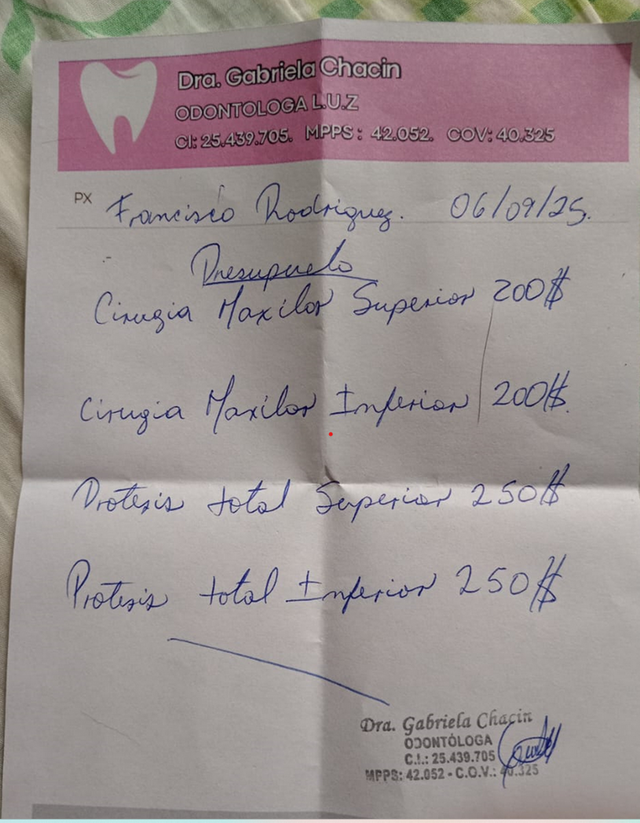 Dra. Gabriela Chacin
ODONTOLOGA L.U.Z
CI: 25.439.705. MPPS: 42.052. COV: 40.325
PX Francisco Rodriguez. 06/09/25.
Presupuesto
Cirugia Maxilar Superior 200$
Cirugia Maxilar Inferior 200$.
Protesis total Superior 250$
Protesis total Inferior 250$
Dra. Gabriela Chacin
ODONTÓLOGA
C.I.: 25.439.705
MPPS: 42.052 - C.O.V.: 40.325